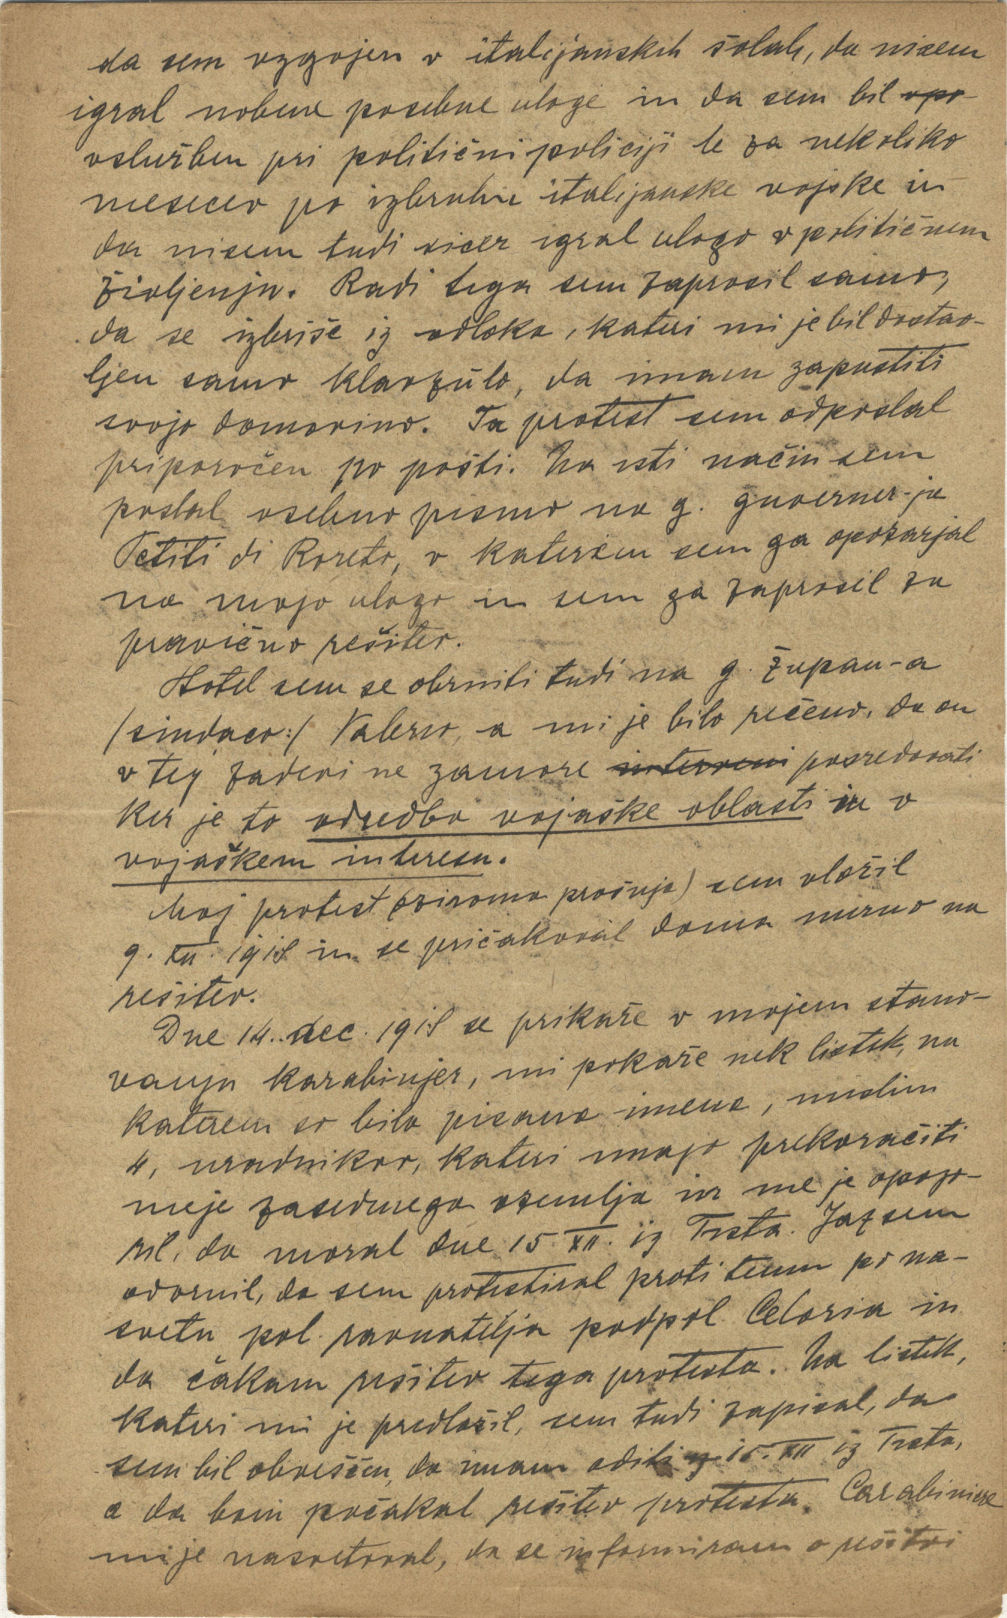 da sem vzgojen v italijanskih šolah, da nisem
igral nobene posebne uloge in da sem bil opo
vslužben pri politični policiji le za nekoliko
mesecev po izbruhu italijanske vojske in
da nisem tudi sicer igral ulogo v političnem
življenju. Radi tega sem zaprosil samo,
da se izbriše iz odloka, kateri mi je bil dostav-
ljen samo klavzulo, da imam zapustiti
svojo domovino. Ta protest sem odposlal
priporočen po pošti. Na isti način sem
poslal osebno pismo na g. guverner-ja
Petiti di Roreto, v katerem sem ga opozarjal
na mojo ulogo in sem ga zaprosil za
pravično rešitev.
Hotel sem se obrniti tudi na g. župan-a
/sindaco:/ Valerio, a mi je bilo rečeno, da on
v tej zadevi ne zamore interveni posredovati
ker je to odredba vojaške oblasti in v
vojaškem interesu.
Moj protest (oziroma prošnjo) sem vložil
9. XII. 1918 in se pričakoval doma mirno na
rešitev.
Dne 14. dec. 1918 se prikaže v mojem stano-
vanju karabinjer, mi pokaže nek listek, na
katerem so bila pisana imena, mislim
4, uradnikov, kateri imajo prekoračiti
meje zasedenega ozemlja in me je opozo-
ril, da moral dne 15. XII. iz Trsta. Jaz sem
odvrnil, da sem protestiral proti temu po na-
svetu pol. ravnatelja podpol. Celoria in
da čakam rešitev tega protesta. Na listek,
kateri mi je predložil, sem tudi zapisal, da
sem bil obveščen, da imam oditi 15. XII iz Trsta,
a da bom počakal rešitev protesta. Carabiniere
mi je nasvetoval, da se informiram o rešitvi